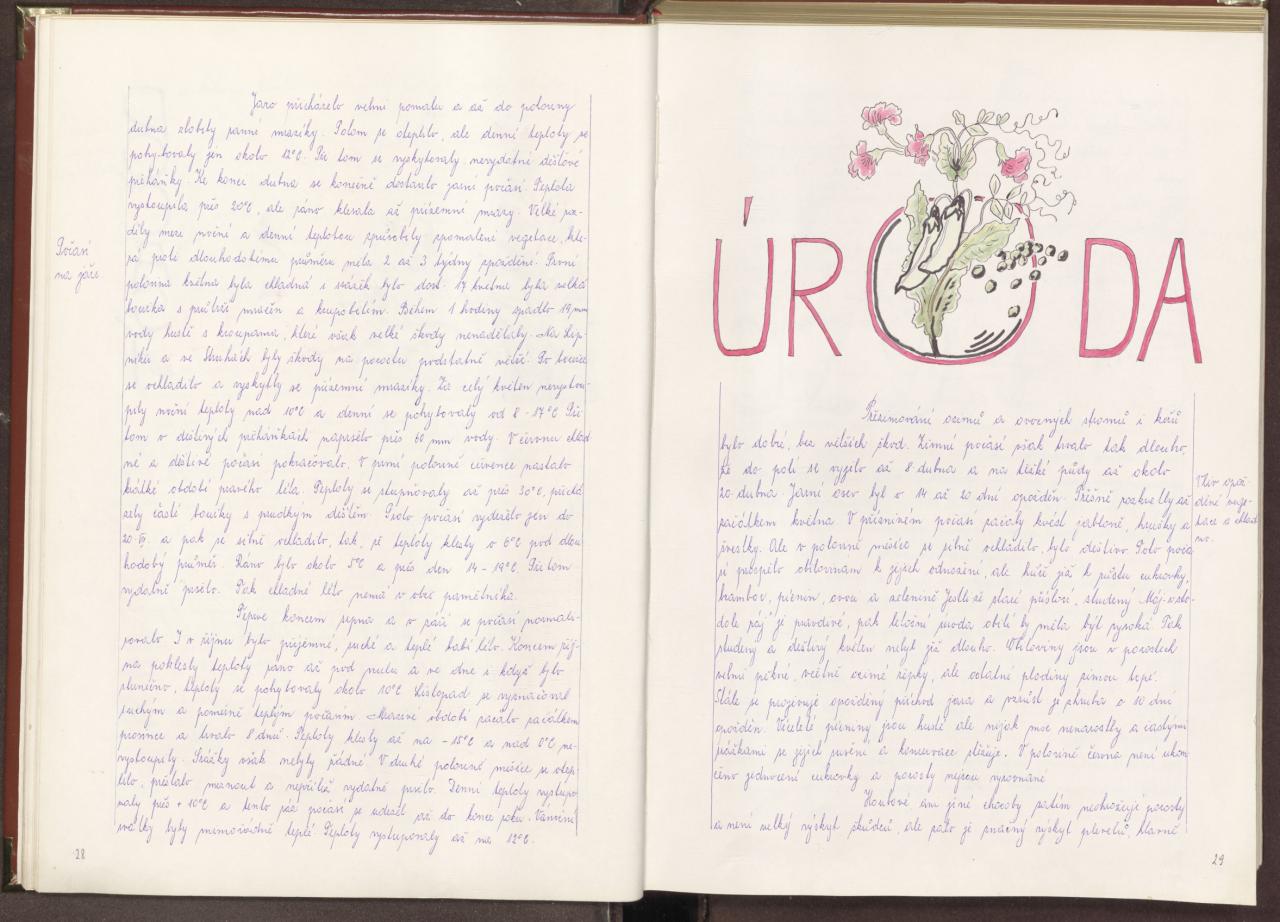 Jaro přicházelo velmi pomalu a až do poloviny
dubna zlobily ranní mrazíky. Potom se oteplilo, ale denní teploty se
pohybovaly jen okolo 12°C. Při tom se vyskytovaly nevydatné dešťové
přeháňky. Ke konci dubna se konečně dostavilo jarní počasí. Teplota
vystoupila přes 20°C, ale ráno klesala až přízemní mrazy. Velké roz-
díly mezi noční a denní teplotou způsobily zpomalení vegetace, kte-
rá proti dlouhodobému průměru měla 2 až 3 týdny zpoždění. První
polovina května byla chladná i mrazík bylo dost. 17 května byla velká
bouřka s průtrží mračen a krupobitím. Během 1 hodiny spadlo 19 mm
vody hustě s kroupama, které však velké škody nenadělaly. Na Lip-
níku a ve Struhách byly škody na porostu podstatně větší. Po bouřce
se ochladilo a vyskytly se přízemní mrazíky. Za celý květen nevystou-
pily noční teploty nad 10°C a denní se pohybovaly od 8 - 17°C Při
tom v deštivých přeháňkách napršelo přes 60 mm vody. V červnu chlad
né a deštivé počasí pokračovalo. V první polovině července nastalo
krátké období pravého léta. Teploty se stupňovaly až přes 30°C, přichá
zely časté bouřky s prudkým deštěm. Toto počasí vydrželo jen do
20. VII. a pak se silně ochladilo, tak, že teploty klesly o 6°C pod dlou
hodobý průměr. Ráno bylo okolo 5°C a přes den 14 - 19°C. Při tom
vydatně pršelo. Tak chladné léto nemá v obci pamětníka.
Teprve koncem srpna a v září se počasí normali-
zovalo I v říjnu bylo příjemné, suché a teplé babí léto. Koncem říj-
na poklesly teploty ráno až pod nulu a ve dne i když bylo
slunečno, teploty se pohybovaly okolo 10°C Listopad se vyznačoval
suchým a poměrně teplým počasím Mrazivé období začalo začátkem
prosince a trvalo 8 dnů. Teploty klesly až na -15°C a nad 0°C ne-
vystoupily. Srážky však nebyly žádné V druhé polovině měsíce se otep
lilo, přestalo mrznout a nepříliš vydatně pršelo. Denní teploty vystupo
valy přes + 10°C a tento ráz počasí se udržel až do konce roku. Vánoční
svátky byly mimořádně teplé Teploty vystupovaly až na 12°C.
Počasí
na jaře
28
ÚRODA
Přezimování ozimů a ovocných stromů i keřů
bylo dobré, bez větších škod. Zimní počasí však trvalo tak dlouho,
že do polí se vyjelo až 8 dubna a na těžké půdy až okolo
20. dubna. Jarní osev byl o 14 až 20 dní opožděn. Třešně rozkvetly až
začátkem května. V příznivém počasí začaly kvést jabloně, hrušky a
švestky. Ale v polovině měsíce se silně ochladilo, bylo deštivo. Toto poča
sí prospělo obilovinám k jejich odnožení, ale hůře již k růstu cukrovky,
brambor, pícnin, ovoci a zelenině Jestli že staré přísloví, studený Máj v sto-
dole ráj" je pravdivé, pak letošní úroda obilí by měla být vysoká. Tak
studený a deštivý květen nebyl již dlouho. Obiloviny jsou v porostech
velmi pěkné, včetně ozimé řepky, ale ostatní plodiny zimou trpí.
Stále se projevuje opožděný příchod jara a vzrůst je zhruba o 10 dní
opožděn. Víceleté pícniny jsou husté ale nijak moc nenarostly a častými
srážkami se jejich sušení a konzervace ztěžuje. V polovině června není ukon
čeno jednocení cukrovky a porosty nejsou vyrovnané
Houbové ani jiné choroby zatím neohrožují porosty
a není velký výskyt škůdců, ale zato je značný výskyt plevelů, hlavně
Vliv opož
děné vege
tace a chlad
no.
29